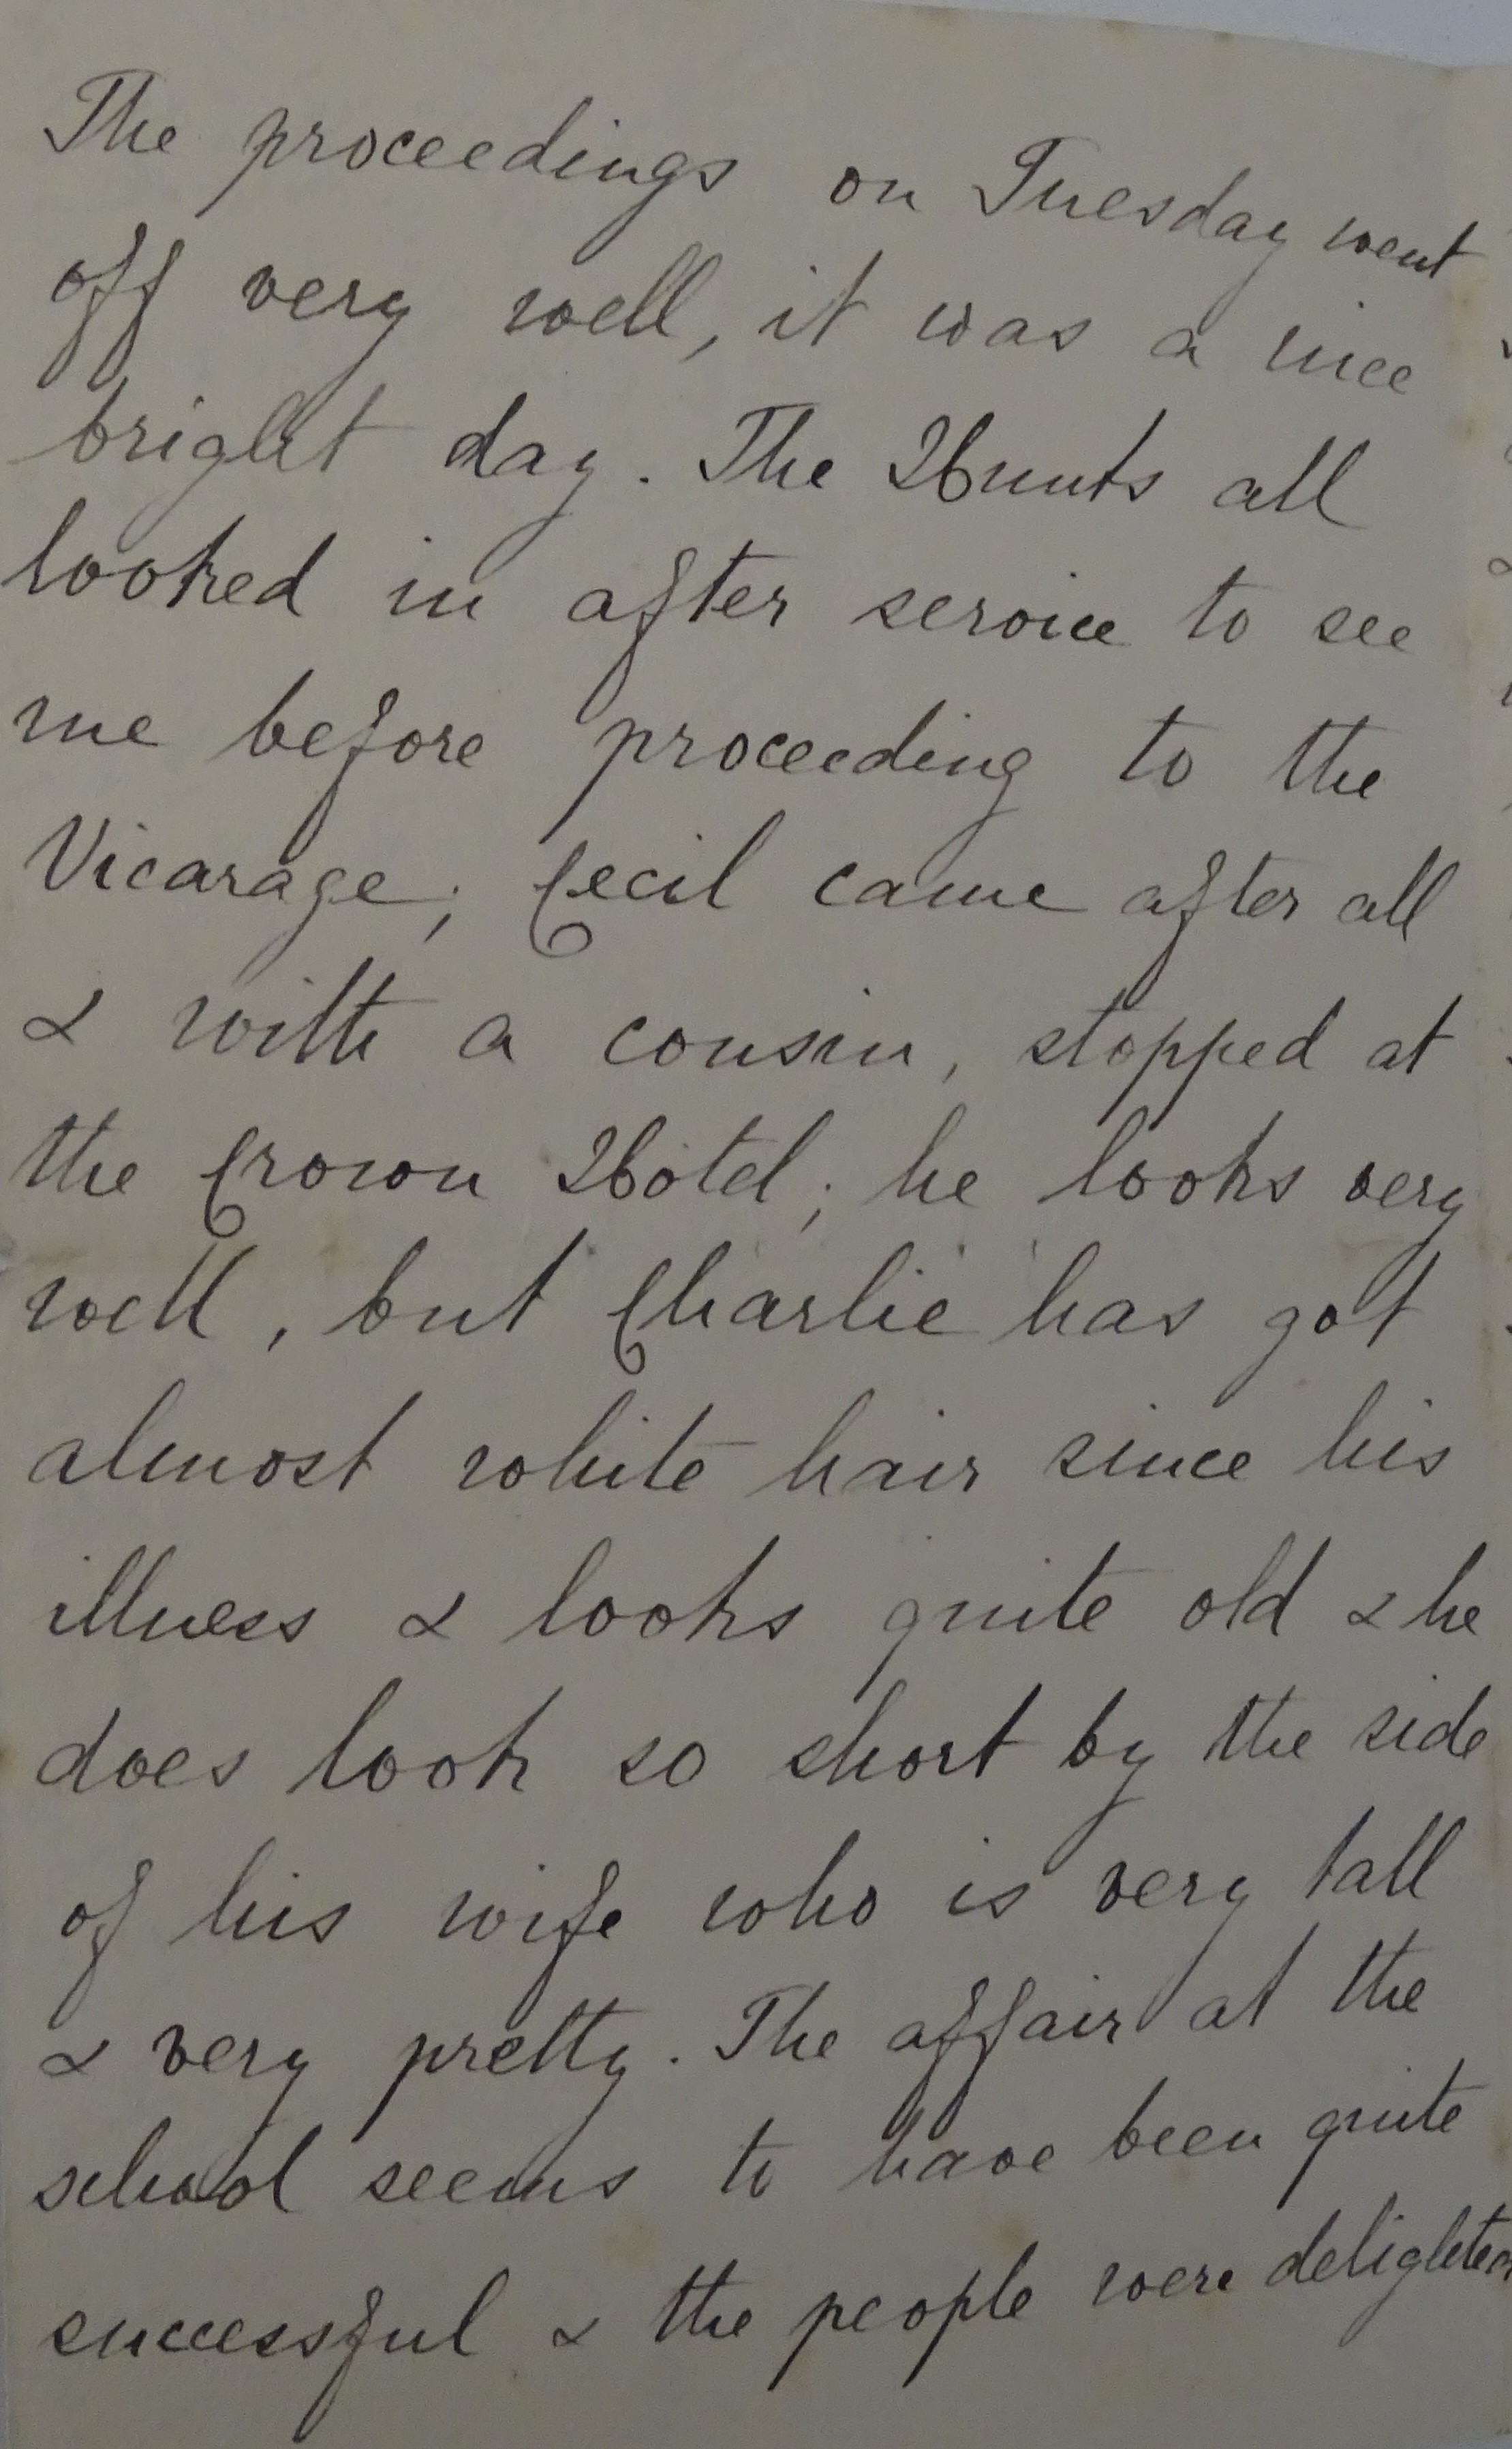 The proceedings on Tuesday went
off very well, it was a nice
bright day. The Hunts all
looked in after service to see
me before proceeding to the
Vicarage; Cecil came after all
& with a cousin, stopped at
the Crown Hotel; he looks very
well, but Charlie has got
almost white hair since his
illness & looks quite old & he
does look so short by the side
of his wife who is very tall
& very pretty. The affair at the
school seems to have been quite
successful & the people were delighted